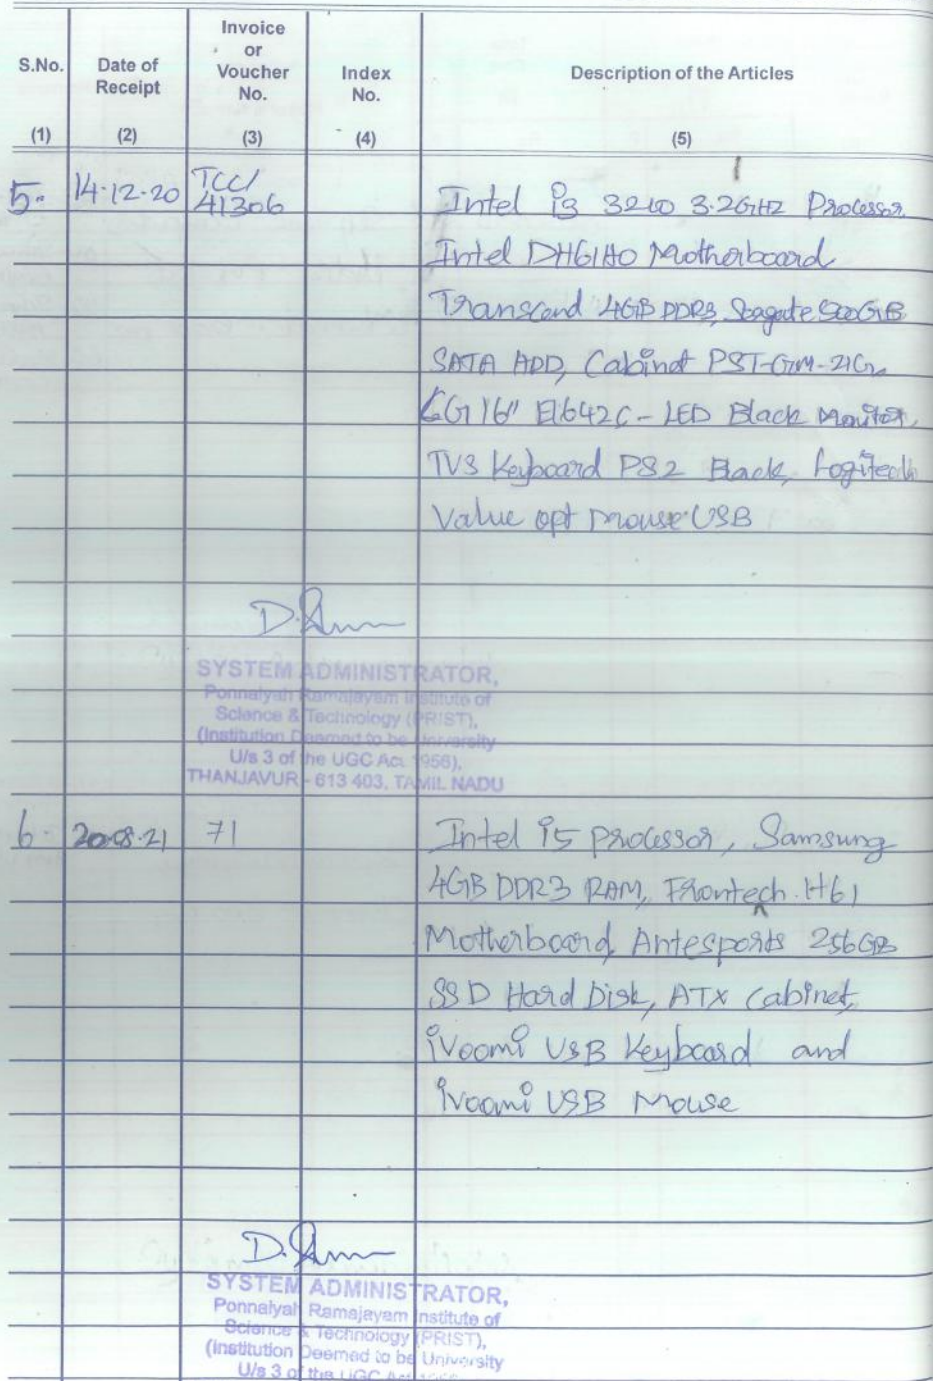 Invoice
or
S.No. Date of Receipt Voucher No. Index No. Description of the Articles
(1) (2) (3) (4) (5)
5. 14-12-20 TCC/ 41306 Intel i3 3210 3.2GHz Processor
Intel DH61HO Motherboard
Transcend 4GB DDR3, Seagate 500GB
SATA HDD, Cabinet PST-GM-21G
LG 16" E1642C - LED Black Monitor,
TVS Keyboard PS2 Black, Logitech
Value opt Mouse USB
SYSTEM ADMINISTRATOR,
Ponnaiyah Ramajayam Institute of
Science & Technology (PRIST),
(Institution Deemed to be University
U/s 3 of the UGC Act 1956),
THANJAVUR - 613 403, TAMIL NADU
6. 20.08.21 71 Intel i5 processor, Samsung
4GB DDR3 RAM, Frontech H61
Motherboard, Antesports 256GB
SSD Hard Disk, ATX Cabinet,
iVoomi USB Keyboard and
iVoomi USB Mouse
SYSTEM ADMINISTRATOR,
Ponnaiyah Ramajayam Institute of
Science & Technology (PRIST),
(Institution Deemed to be University
U/s 3 of the UGC Act